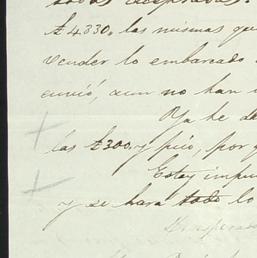 todas
£4.330. las mismas que
vender lo embarcado
envió, aun no han
Ya he de
ías £300. y pico, por q
Estoy impu
y se hara todo lo